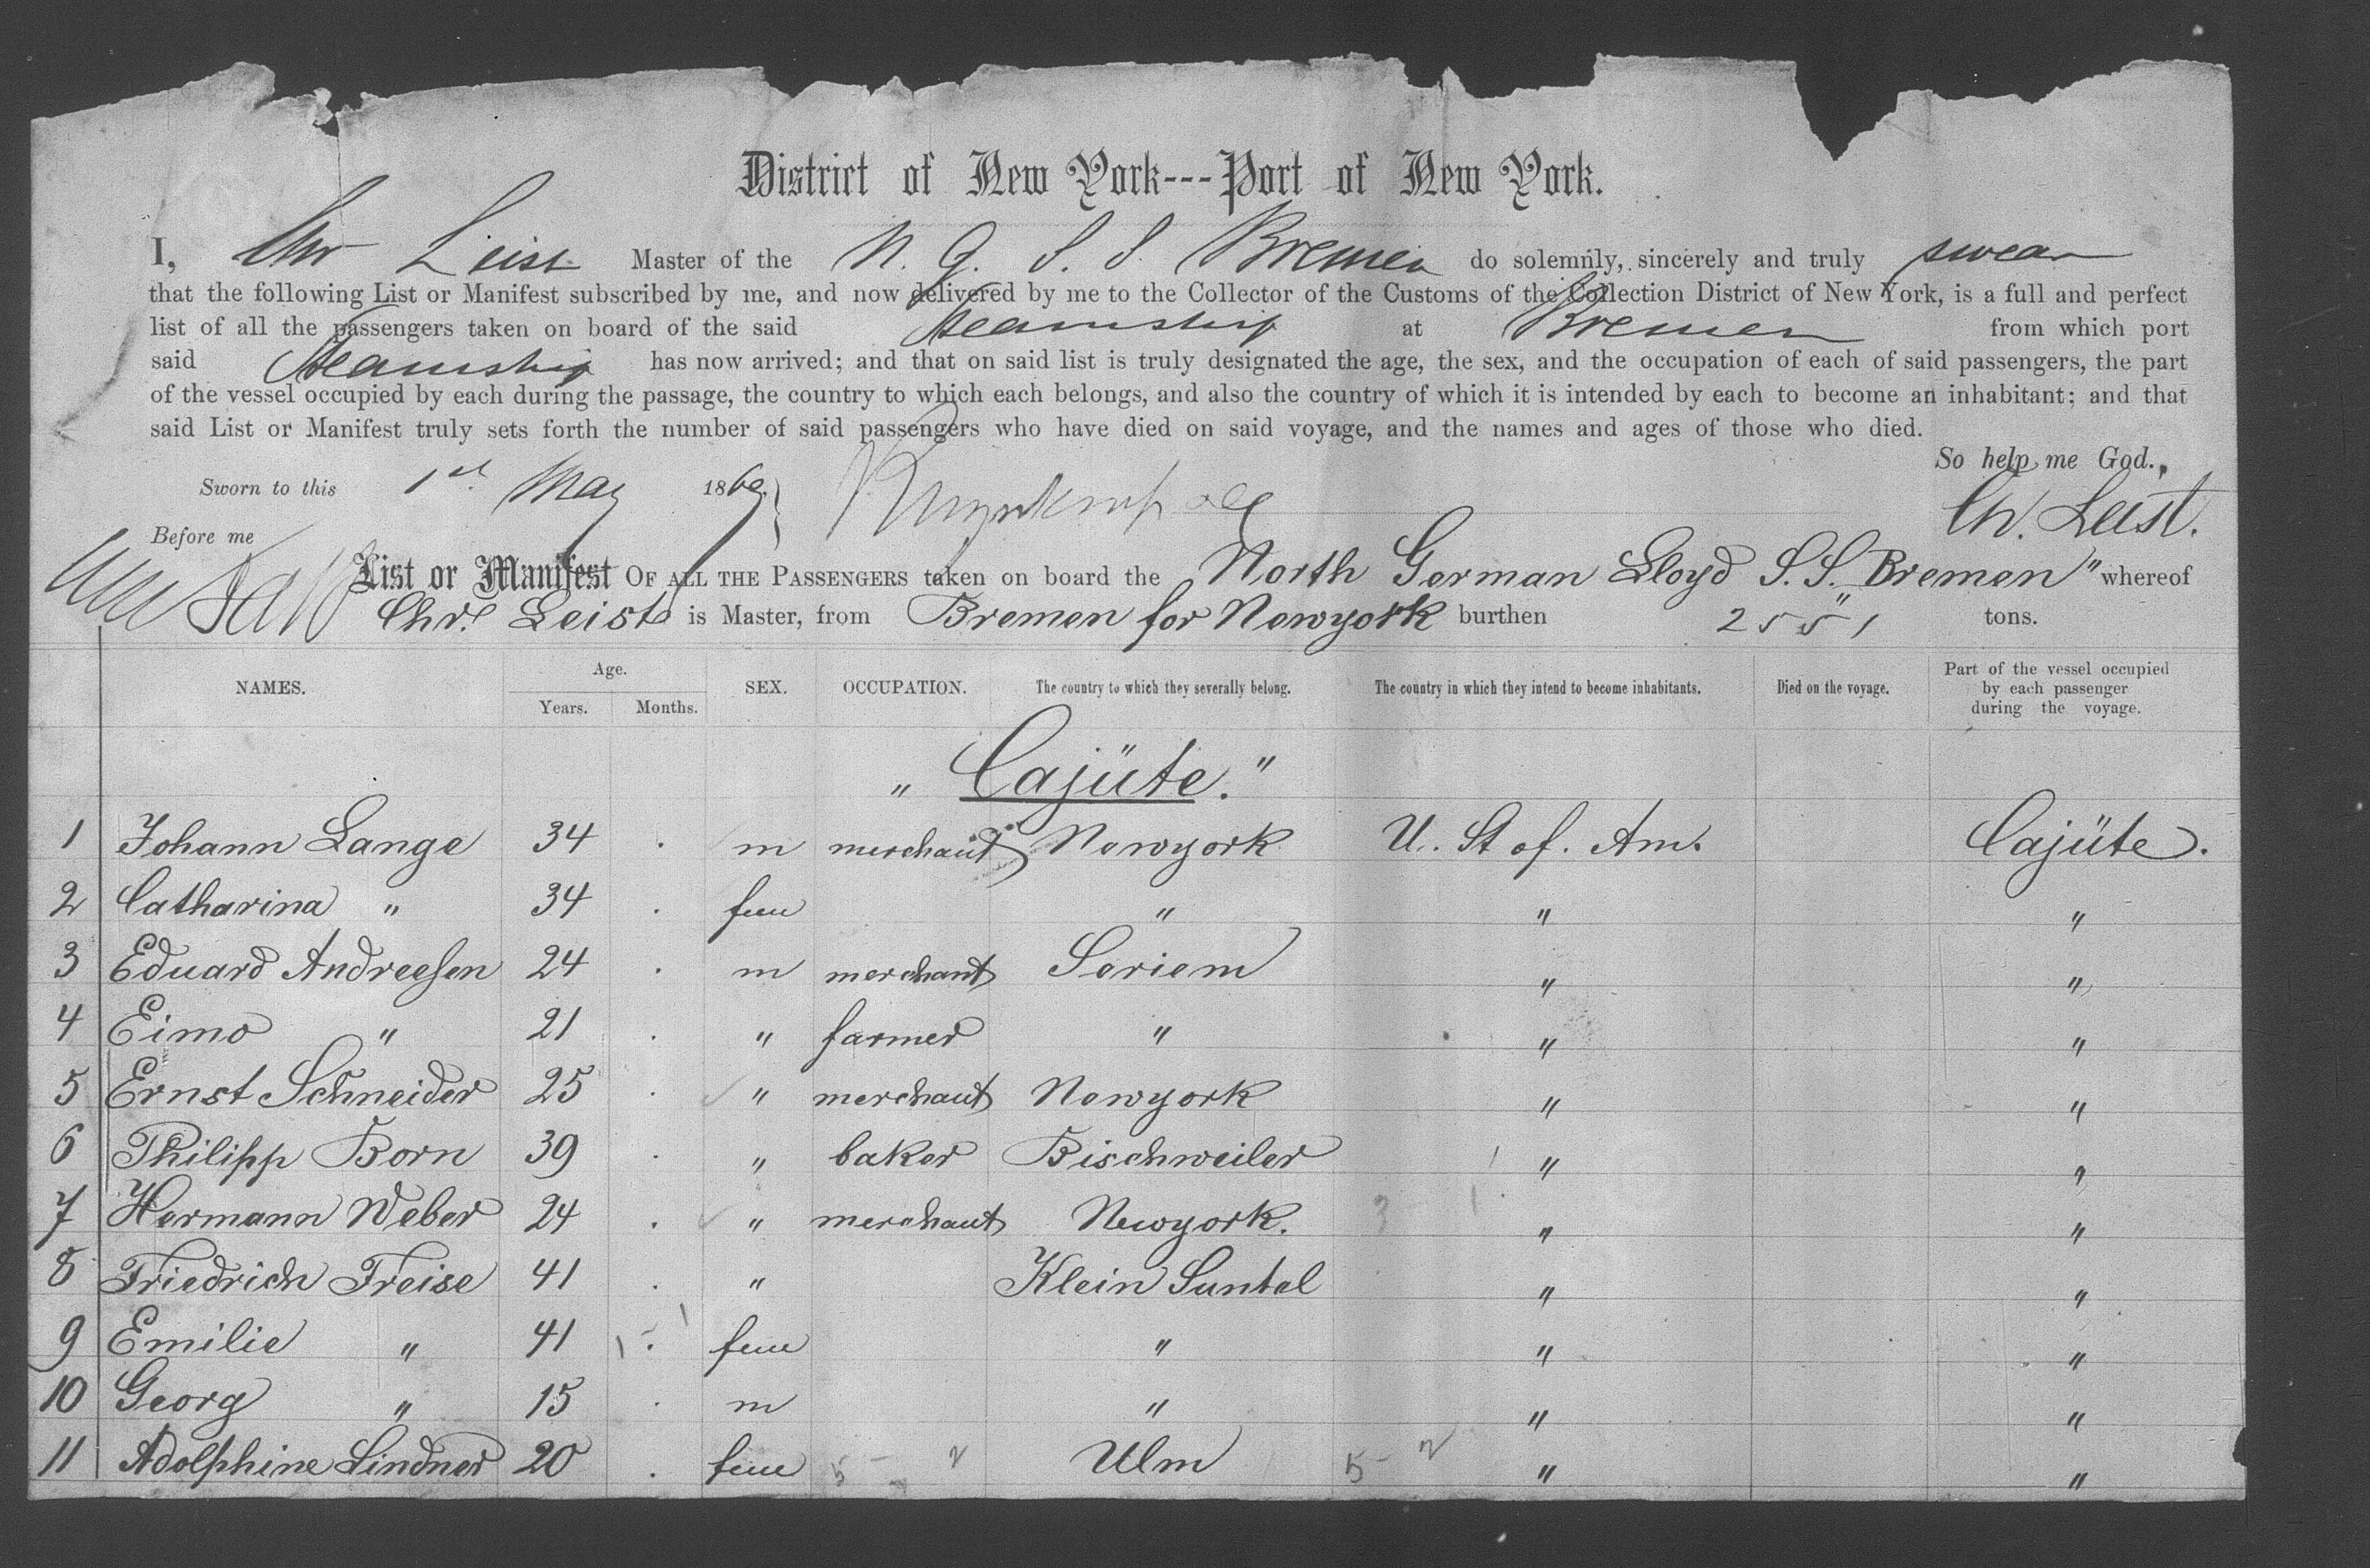 District of New York---Port of New York.
I, Chr Leist Master of the N. G. S. S. Bremen do solemnly, sincerely and truly swear
that the following List or Manifest subscribed by me, and now delivered by me to the Collector of the Customs of the Collection District of New York, is a full and perfect
list of all the passengers taken on board of the said Steamship at Bremen from which port
said Steamship has now arrived; and that on said list is truly designated the age, the sex, and the occupation of each of said passengers, the part
of the vessel occupied by each during the passage, the country to which each belongs, and also the country of which it is intended by each to become an inhabitant; and that
said List or Manifest truly sets forth the number of said passengers who have died on said voyage, and the names and ages of those who died.
So help me God.
Sworn to this 1st May 1869.
Ch. Leist.
Before me
List or Manifest OF ALL THE PASSENGERS taken on board the North German Lloyd S. S. "Bremen" whereof
Chr. Leist is Master, from Bremen for Newyork burthen 2551 tons.
NAMES. Age. Years. Months. SEX. OCCUPATION. The country to which they severally belong. The country in which they intend to become inhabitants. Died on the voyage. Part of the vessel occupied by each passenger during the voyage.
„ Cajüte."
1 Johann Lange 34 . m merchant Newyork U. St of. Am. Cajüte.
2 Catharina " 34 . fem " " "
3 Eduard Andreesen 24 . m merchant Soriem " "
4 Eimo " 21 . " farmer " " "
5 Ernst Schneider 25 . " merchant Newyork " "
6 Philipp Born 39 . " baker Bischweiler " "
7 Hermann Weber 24 . " merchant Newyork. " "
8 Friedrich Freise 41 . " Klein Suntel " "
9 Emilie " 41 . fem " " "
10 Georg " 15 . m " " "
11 Adolphine Lindner 20 . fem Ulm " "